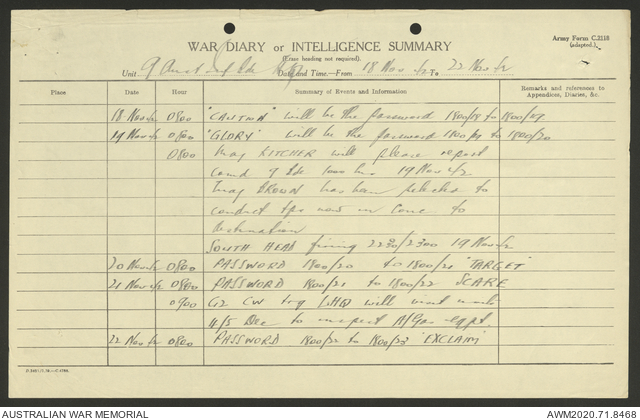 Army Form C.2118
(adapted.)
WAR DIARY or INTELLIGENCE SUMMARY
(Erase heading not required).
Unit 9 Aust Inf Bde Date and Time.—From 18 Nov 42 To 22 Nov 42
Place Date Hour Summary of Events and Information Remarks and references to Appendices, Diaries, &c.
18 Nov 42 0800 will be the password 1800/18 to 1800/19
19 Nov 42 0800 "GLORY" will be the password 1800/19 to 1800/20
0800 Maj KITCHER will please report
comd 9 Bde hrs 19 Nov 42
Maj BROWN has been selected to
conduct tps now in to
destination
SOUTH HEAD firing 2230/2300 19 Nov 42
20 Nov 42 0800 PASSWORD 1800/20 to 1800/21 "TARGET"
21 Nov 42 0800 PASSWORD 1800/21 to 1800/22 SCARE
0900 G2 CW trg LHQ will visit
4/5 Dec to inspect A/Gas eqpt.
22 Nov 42 0800 PASSWORD 1800/22 to 1800/23 "EXCLAIM"
AUSTRALIAN WAR MEMORIAL AWM2020.71.8468